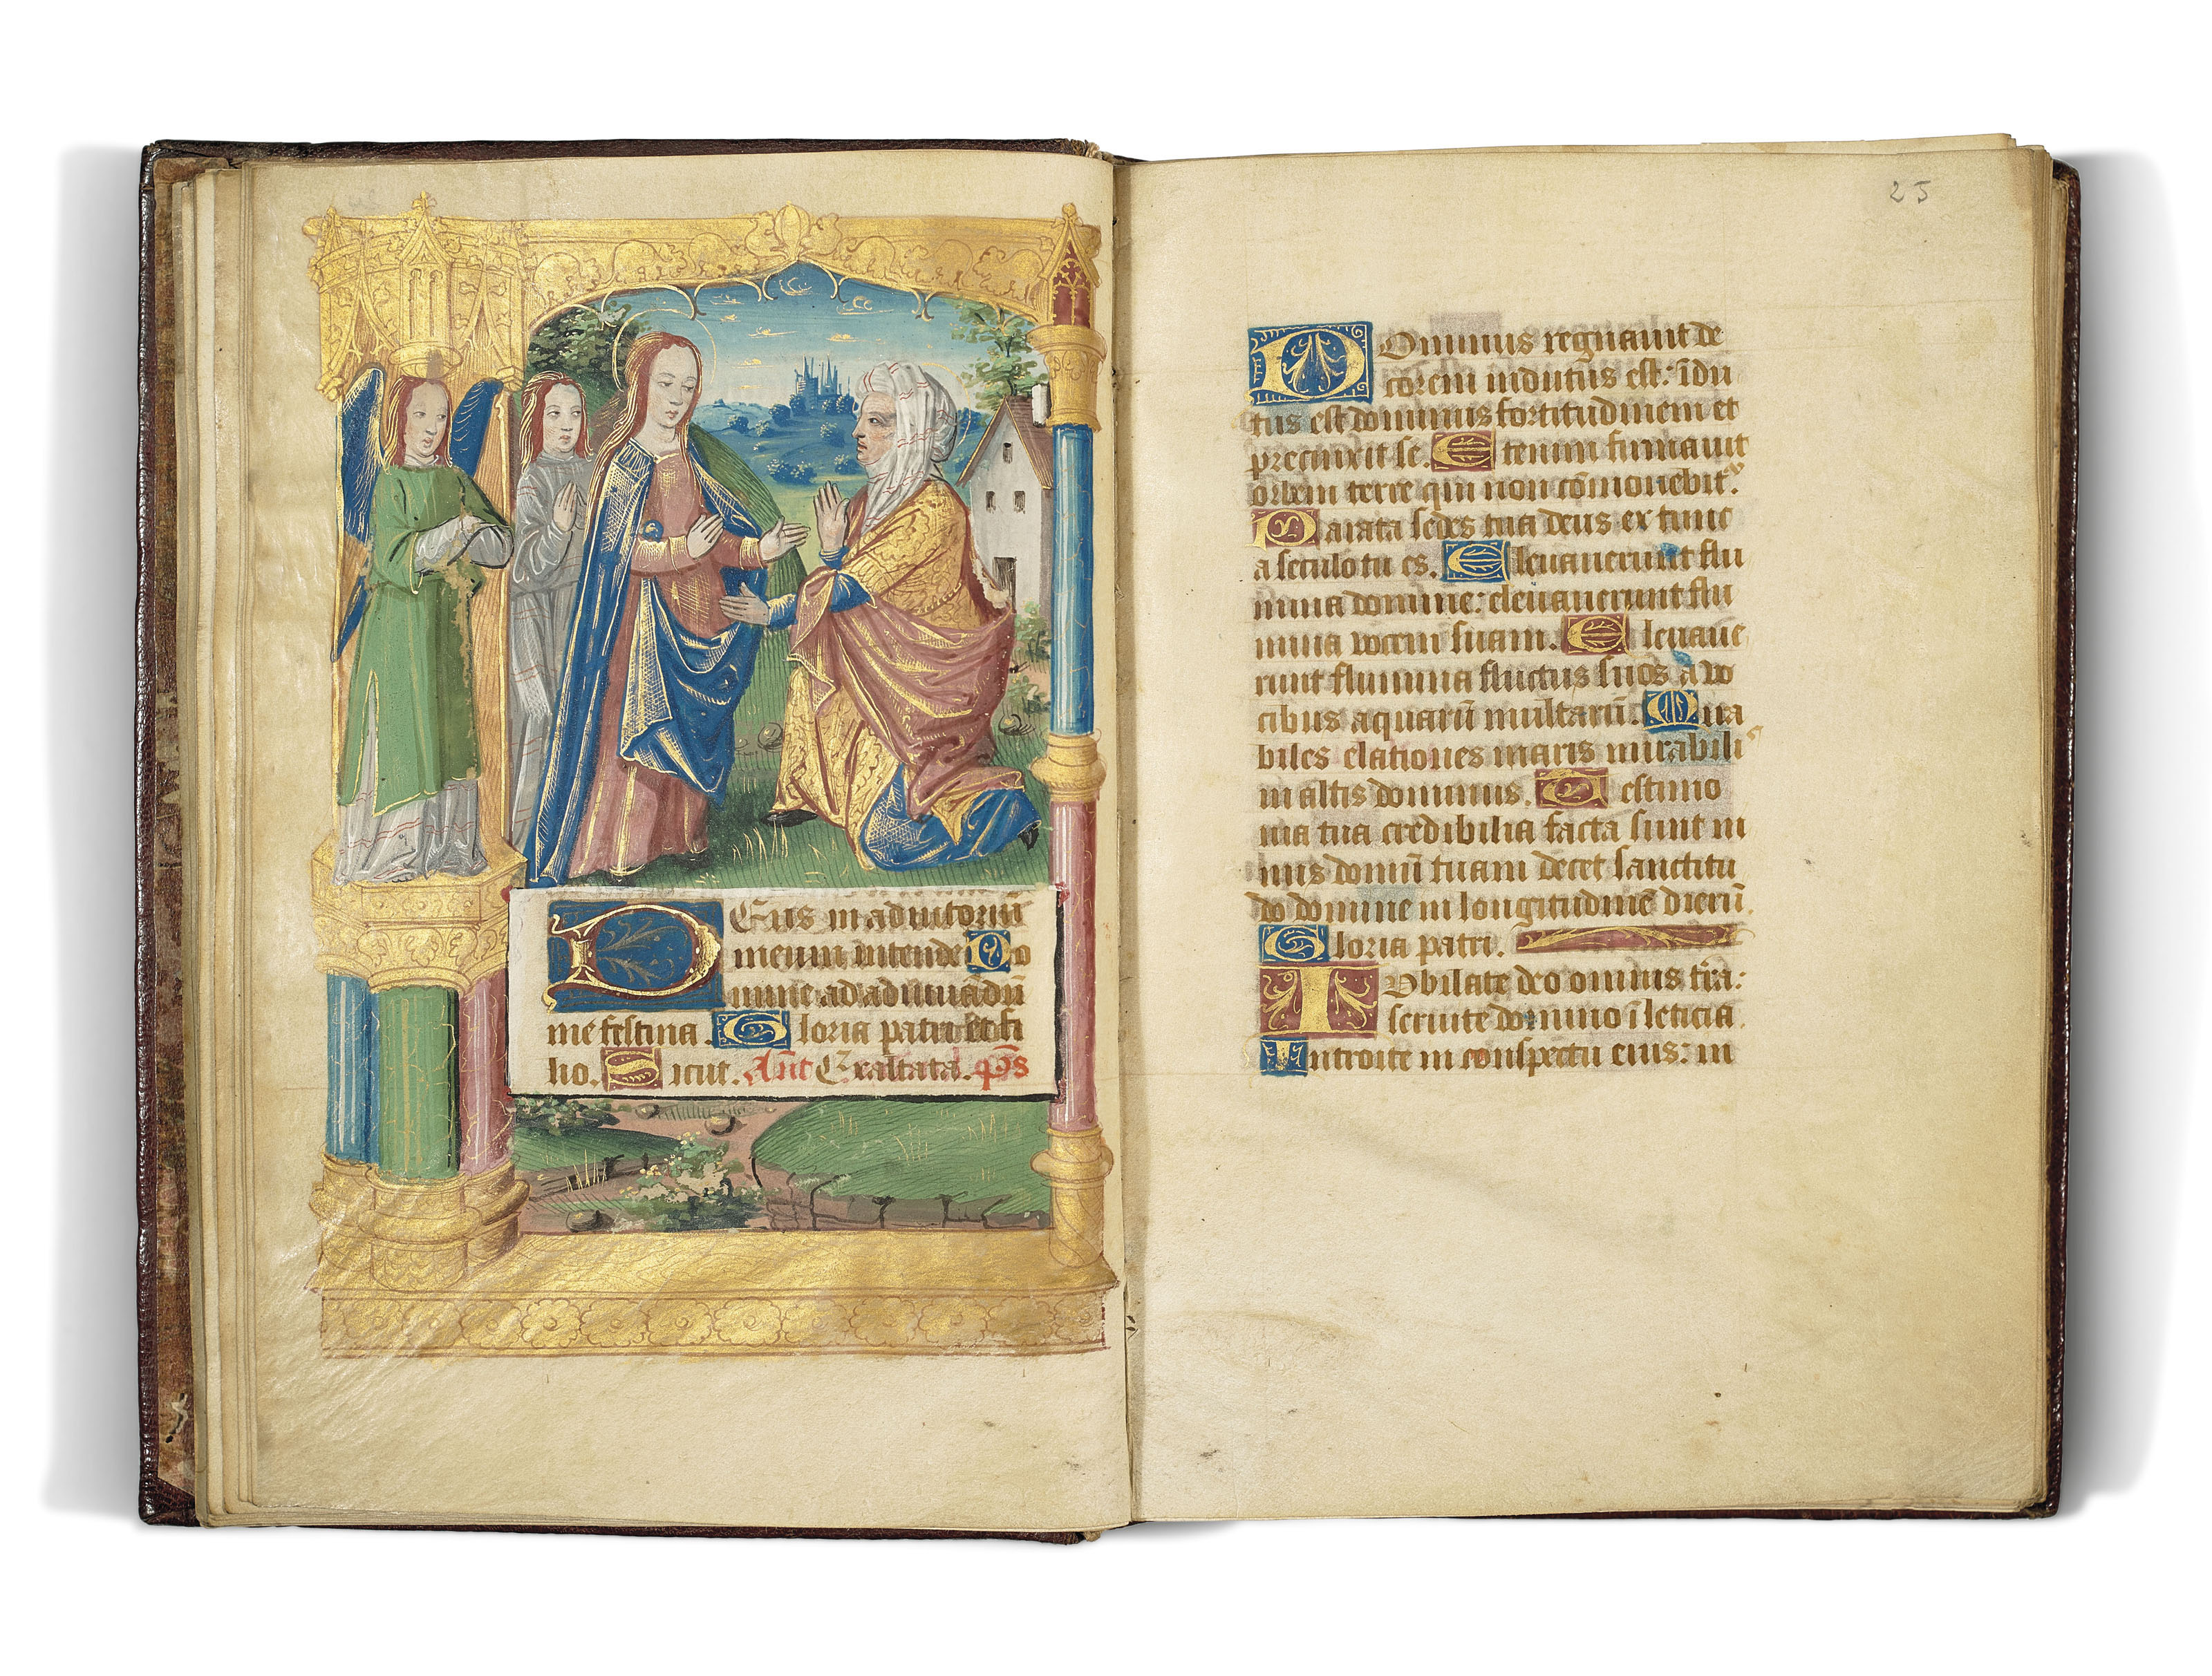 DEus in adiutoriũ
meum intende Do
mine ad adiuuãdũ
me festina. Gloria patri et fi
lio. Sicut. Ant Exaltata. ps̃
25
DOminus regnauit de
corem indutus est: ĩdu
tus est dominus fortitudinem et
precinxit se. Etenim firmauit
orbem terre qui non cõmouebit᷑.
Parata sedes tua deus ex tunc
a seculo tu es. Eleuauerunt flu
mina domine: eleuauerunt flu
mina vocem suam. Eleuaue
runt flumina fluctus suos a vo
cibus aquarũ multarũ. Mira
biles elationes maris mirabili
in altis dominus. Testimo
nia tua credibilia facta sunt ni
mis domũ tuam decet sanctitu
do domine in longitudinẽ dierũ.
Gloria patri.
IVbilate deo omnis tr̃a:
seruite domino ĩ leticia.
Introite in conspectu eius: in